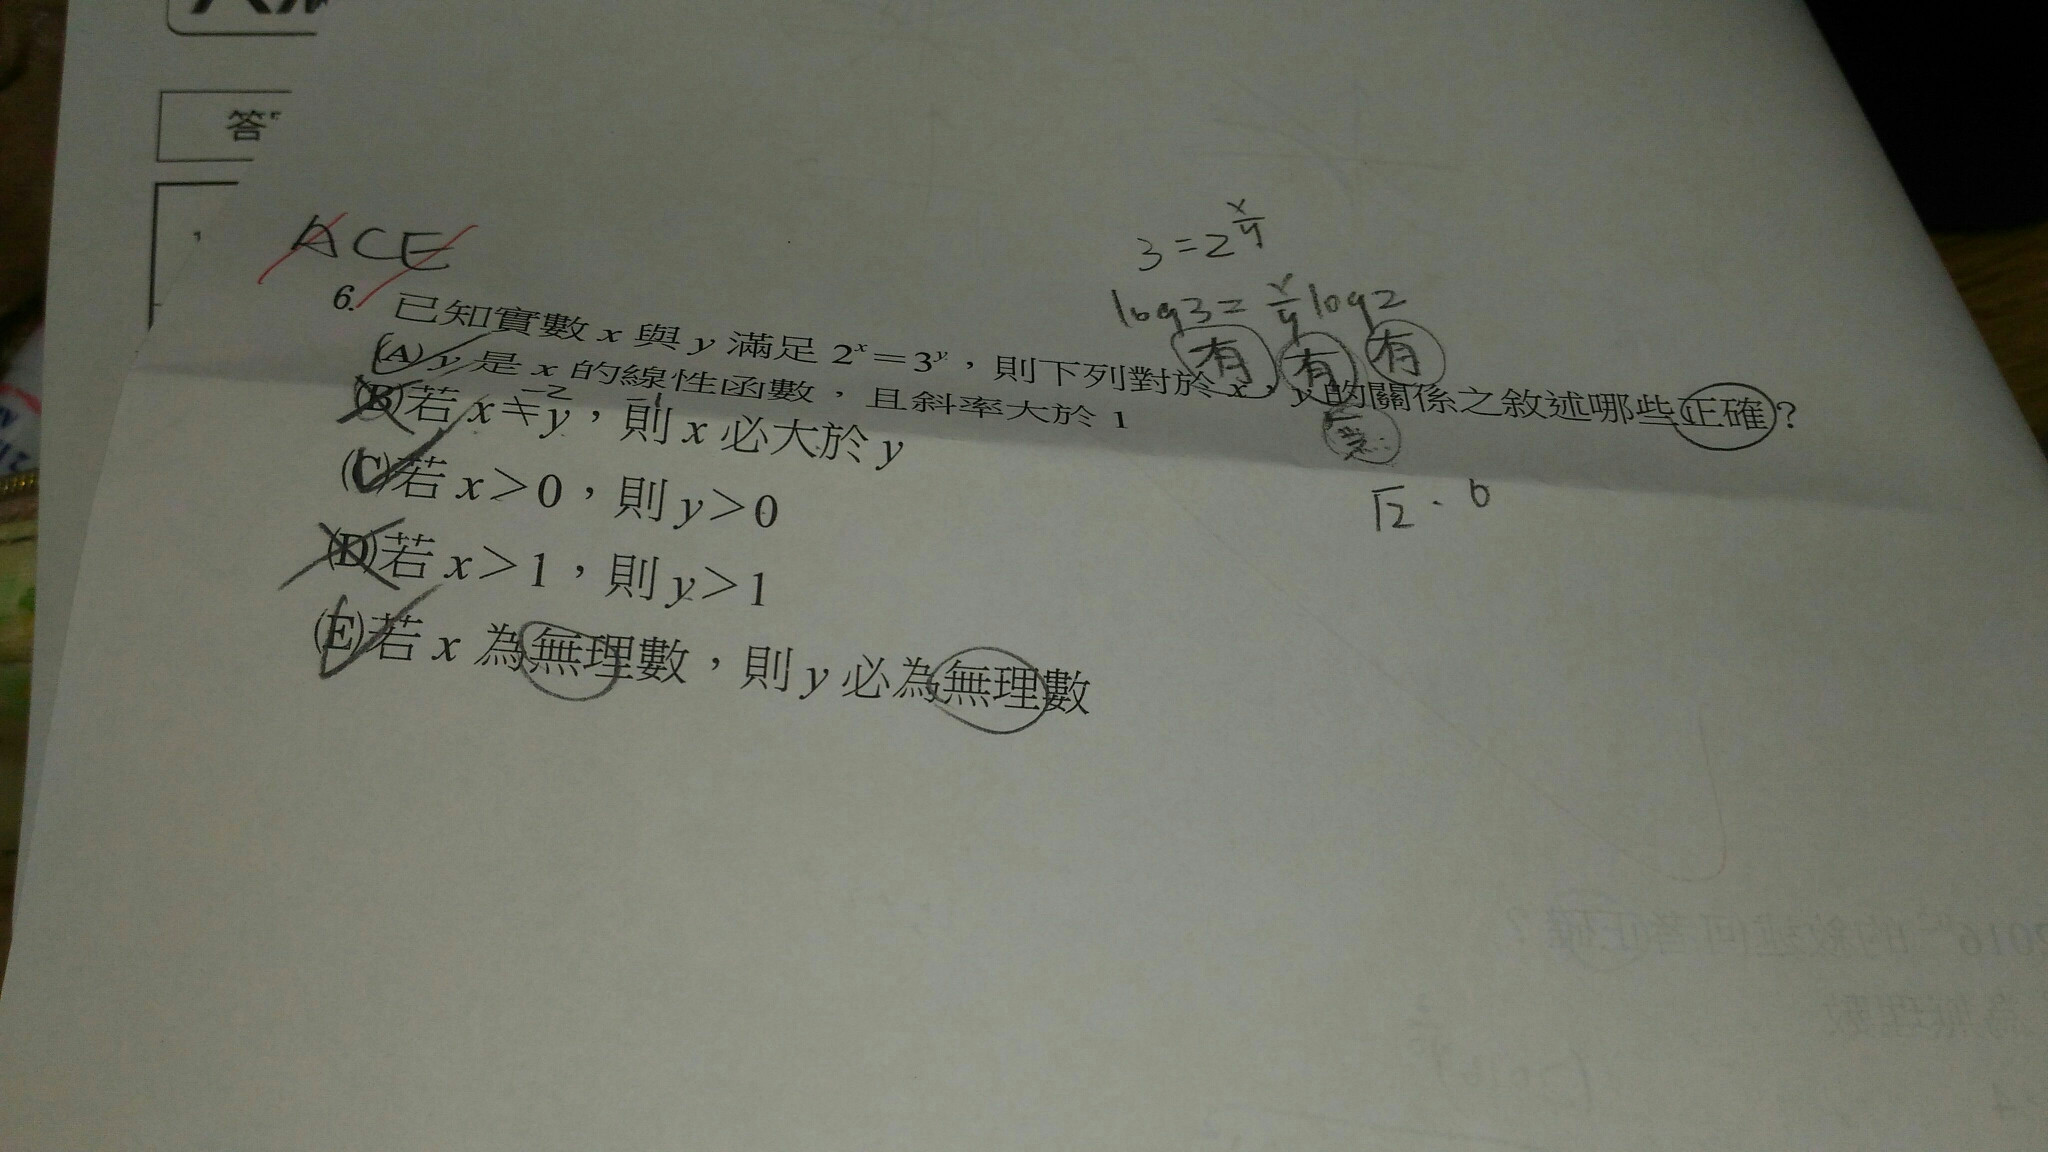 答
ACE
3=2^{x/y}
log3=x/y log2
有 有 有
6. 已知實數 x 與 y 滿足 2^x=3^y，則下列對於 x，y 的關係之敘述哪些正確？
(A) y 是 x 的線性函數，且斜率大於 1
-2 -1
(B)若 x≠y，則 x 必大於 y
√2 · 6
(C)若 x＞0，則 y＞0
(D)若 x＞1，則 y＞1
(E)若 x 為無理數，則 y 必為無理數